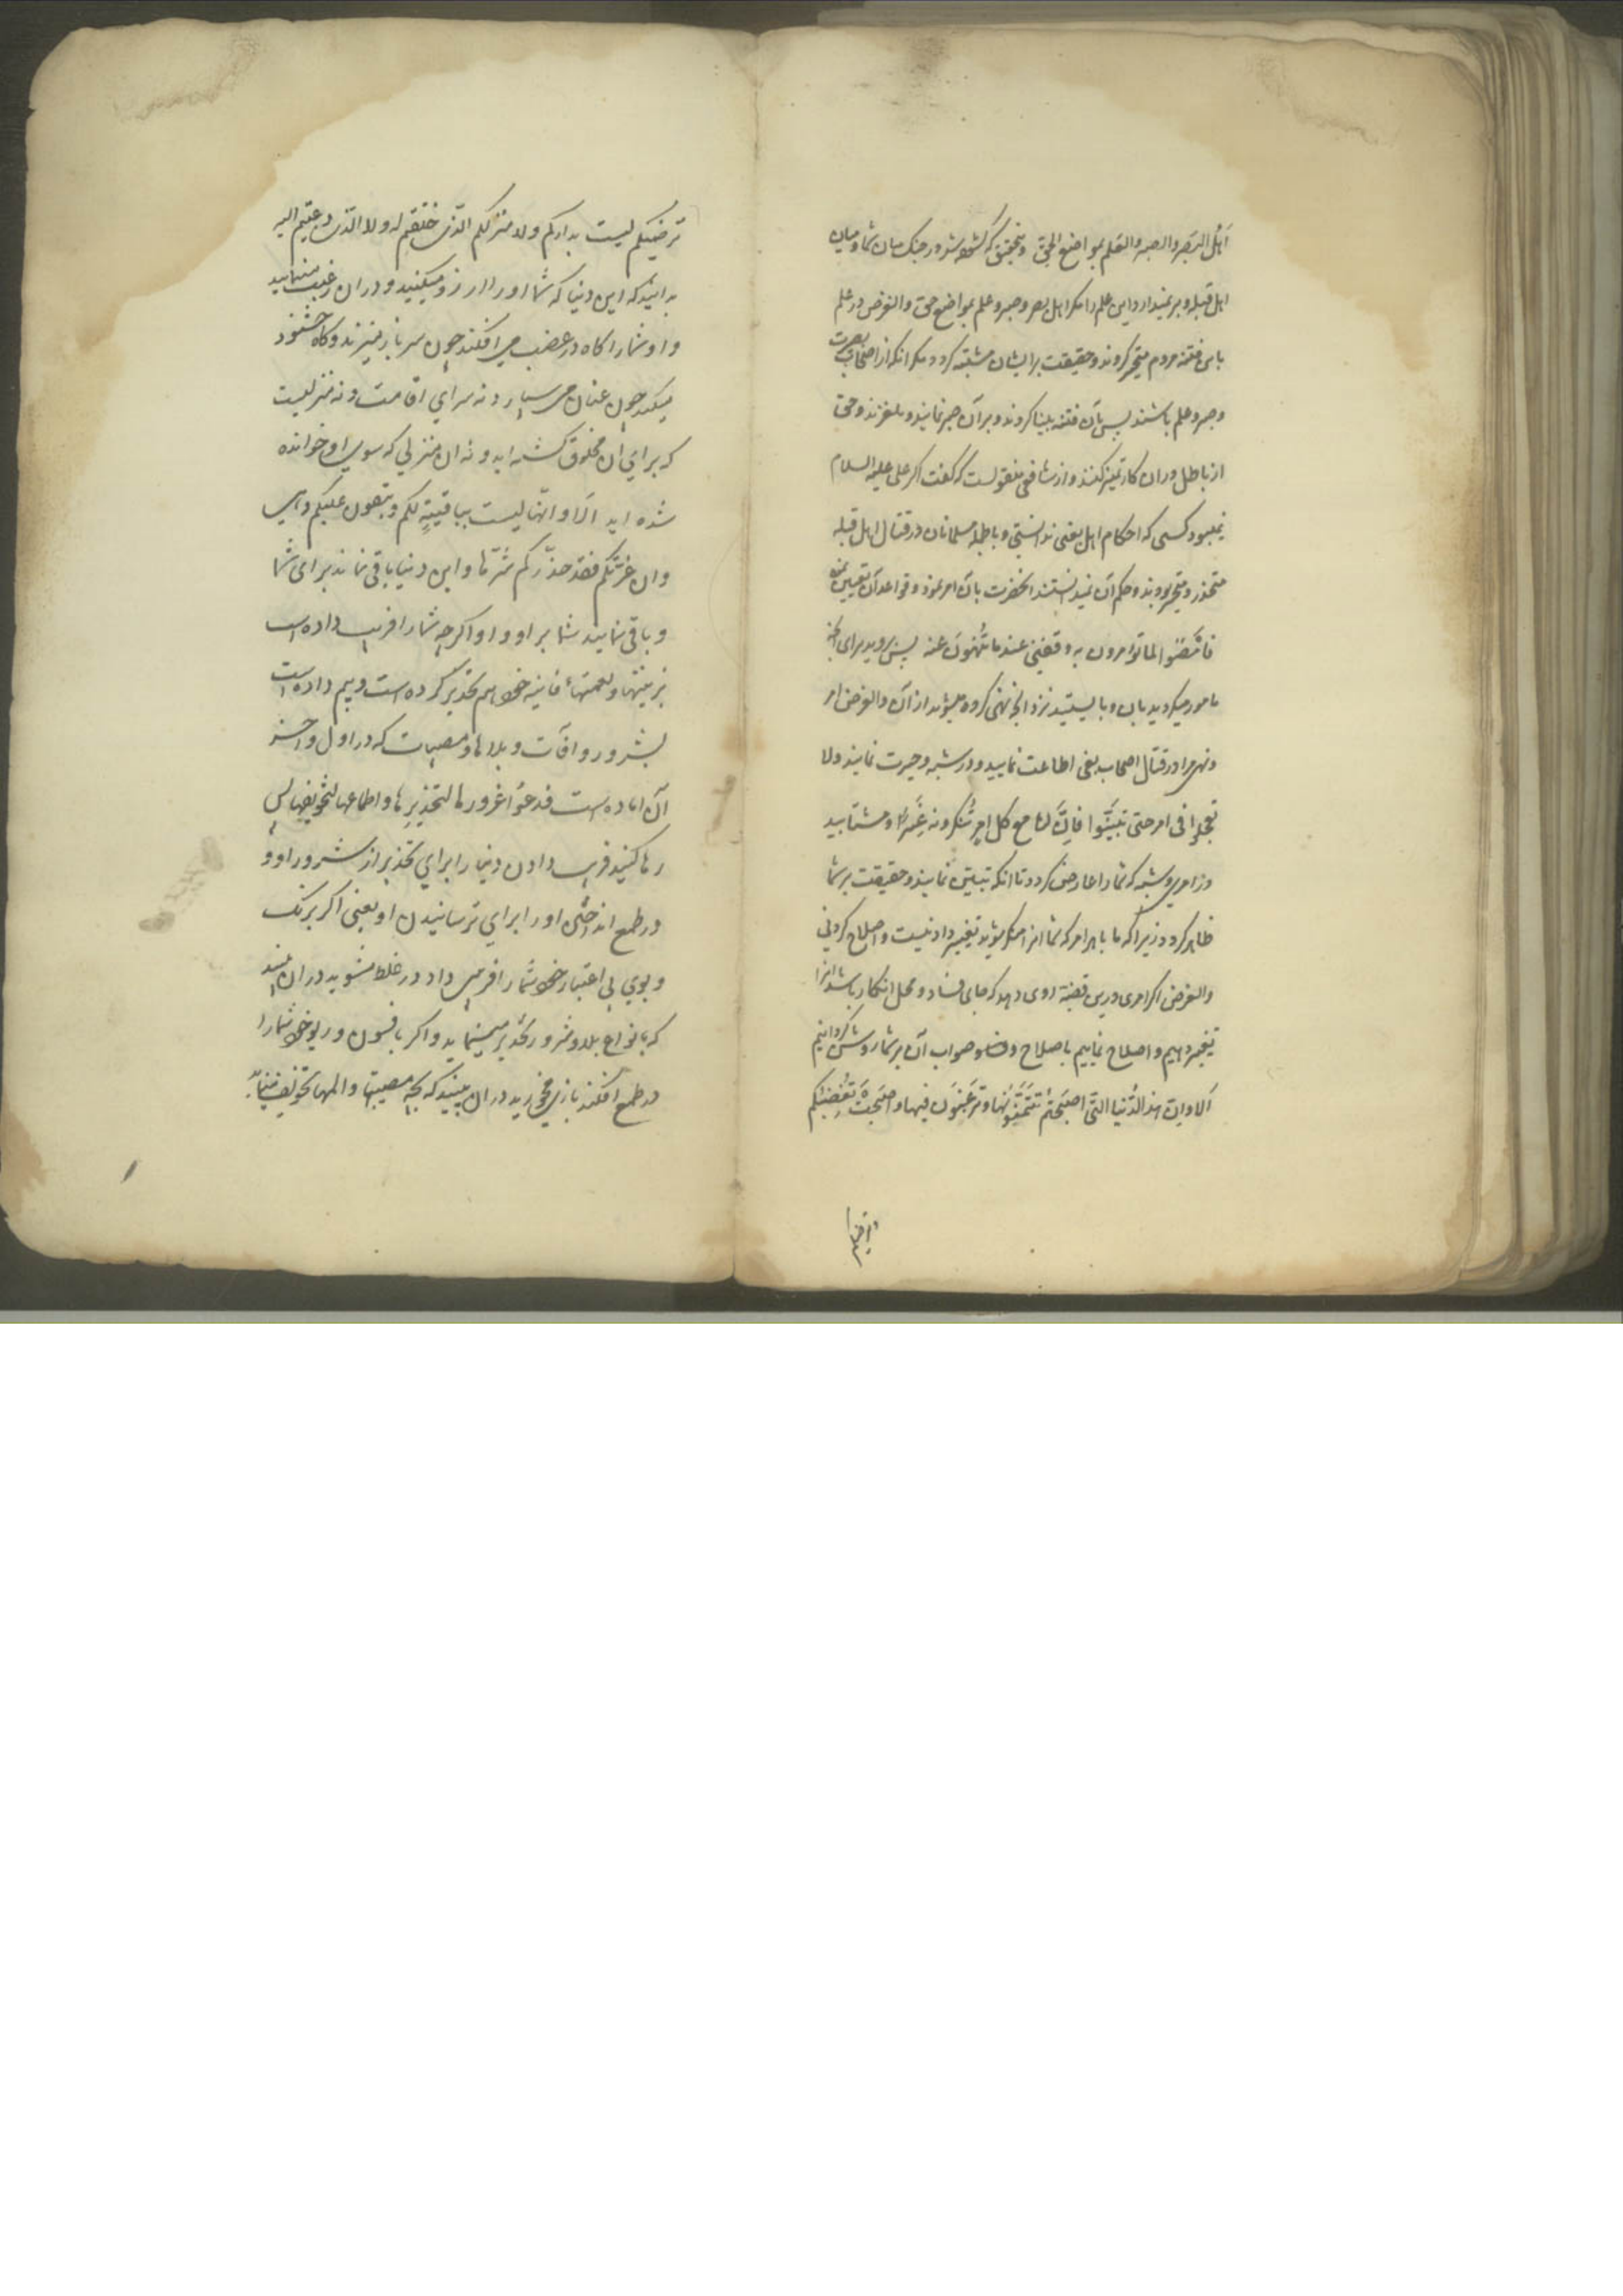 اَهْلُ البَصَرِ والصبر والعلم بمواضع الحق و بتحقیق که گشوده شد در جنک میان شما و میان
اهل قبله و بر نمیدارد این علم را مکر اهل بصر و صبر و علم بمواضع حق والغرض در علم
باین فتنه مردم متحیر کردند و حقیقت بر ایشان مشتبه کردد مکر انکه از اصحاب بصیرت
و صبر و علم باشند پس بآن فتنه بینا کردند و بر آن صبر نمایند و نلغزند و حق
از باطل در ان کار تمیز کنند و از شافعی منقولست که کفت اکر علی علیه السلام
نمیبود کسی که احکام اهل بغی ندانستی و مسلمانان در قتال اهل قبله
متحذر و متحیر بودند و حکم آن نمیدانستند انحضرت بآن امر نمود و قواعد آن تعیین نمود
فَامْضُوا لما تؤمرون به وقفوا عند ما تُنْهَوْنَ عنه پس بروید برای آنچه
مامور میکردید بان و بایستید نزد آنچه نهی کرده میشوید از آن والغرض امر
و نهی مرا در قتال اصحاب بغی اطاعت نمایید و در شبهه و حیرت نمایند ولا
تعجلوا فی امر حتی تتبیَّنوا فانَّ لنا مع کل امرٍ تُنکرونه غِیَراً و مشتابید
در امری و شبهه که شما را عارض کردد تا انکه تبیین نمایند و حقیقت بر شما
ظاهر کردد زیرا که ما با هر امر که شما انرا منکر میشوید تغییر دادنیست و اصلاح کردنی
والغرض اکر امری درین قضیه روی دهد که جای فساد و محل انکار باشد انرا
تغییر دهیم و اصلاح نماییم باصلاح و صواب آن بر شما روشن کردانیم
اَلا وان هذه الدُّنیا التی اصبَحتُم تَتَمَنَّوْنَها و ترغَبُون فیها واصبَحت تُغضِبُکم
وترضیکم
ترضیکم لیست بدارکم ولا منزلکم الّذی خلقتم له ولا الّذی دعیتم الیه
بدانید که این دنیا که شما او را ارزو میکنید و در ان رغبت مینمایید
و او شما را کاه در غضب می افکند چون سر باز میزند و کاه خشنود
میکند چون عنان می سپارد نه سرای اقامت و نه منزلیست
که برای ان مخلوق کشته اید و نه ان منزلی که سوی او خوانده
شده اید اَلا وانّها لیست بباقیةٍ لکم ولا تبقون علیکم وهی
وان غرَّتکم فقد حذّرتکم شرّها و این دنیا باقی نماند برای شما
و باقی نمانید شما بر او و او اکرچه شما را فریب داده است
بزینتها و نعمتهاء فانیه خود هم تحذیر کرده است و بیم داده است
بشرور و افات و بلاها و مصیبات که در اول و آخر
آن اماده است فدعُوا غرورها لتحذیرها و اطماعها لتخویفها پس
رها کنید فریب دادن دنیا را برای تحذیر از شرور او و
در طمع انداختن او را برای ترسانیدن او یعنی اکر برنک
و بوی بی اعتبار خود شما را فریبی داد در غلط مشوید در ان بینید
که بانواع بلا و شرور تحذیر مینماید و اکر بافسون و ریو خود شما را
در طمع افکند بازی مخورید در ان بینید که بچه مصیبتها و المها تخویف مینماید